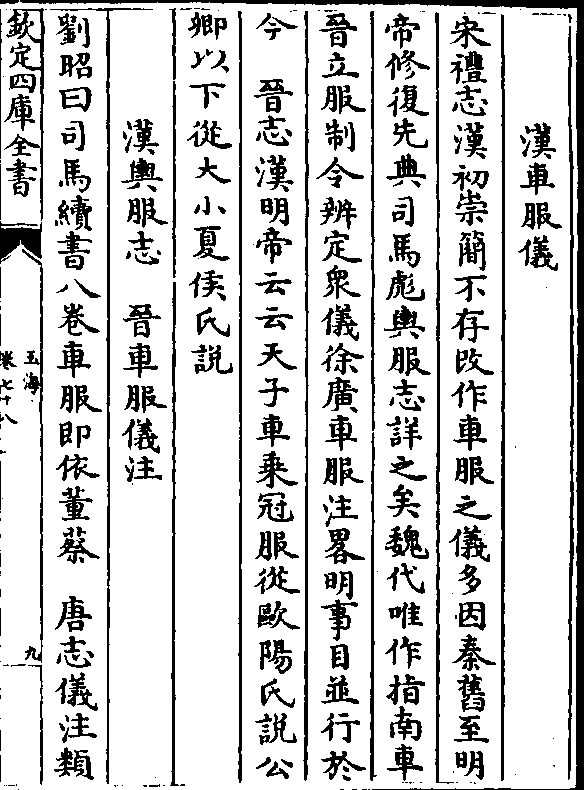 漢車服儀
宋禮志漢初崇簡不存改作車服之儀多因秦舊至明
帝修復先典司馬彪輿服志詳之矣魏代唯作指南車
晉立服制令辨定衆儀徐廣車服注畧明事目並行於
今　晉志漢明帝云云天子車乘冠服從歐陽氏說公
卿以下從大小夏侯氏説
漢輿服志　晉車服儀注
劉昭曰司馬續書八卷車服即依董蔡　唐志儀注類
欽定四庫全書
玉海
卷七十八
九